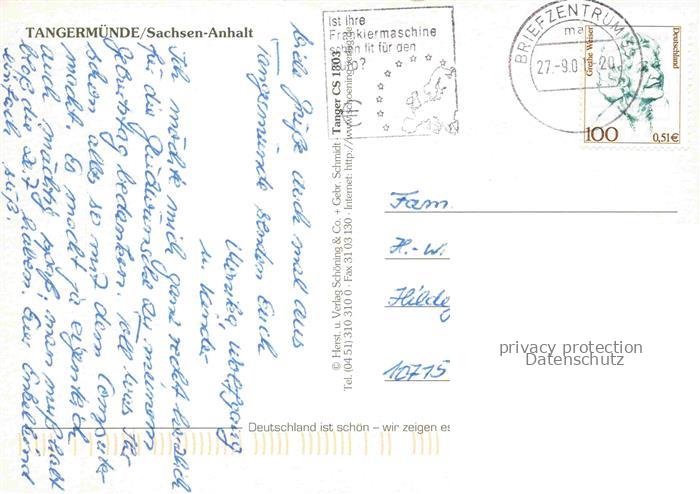 TANGERMÜNDE/Sachsen-Anhalt
Viele Grüße auch mal aus
Tangermünde senden Euch
Wolfgang
u. Kinder
Ich möchte mich ganz herzlich
für die Glückwünsche zu meinem
Geburtstag bedanken. Toll was Ihr
schon alles so mit dem Computer
macht. Es macht ja eigentlich
auch mächtig Spaß; man muß halt
bloß die Zeit haben. Eure Enkel sind
einfach süß.
© Herst. u. Verlag Schöning & Co. + Gebr. Schmidt · Tanger CS 1803
Tel. (04 51) 310 310 0 · Fax 31 03 130 · Internet: http://www.schoening-verlag.de
Ist Ihre
Frankiermaschine
schon fit für den
BRIEFZENTRUM 39
ma
27.-9.01.-20
Grethe Weiser
Deutschland
100
0,51€
Fam.
H.-W.
Hilde
10715
privacy protection
Datenschutz
Deutschland ist schön – wir zeigen es